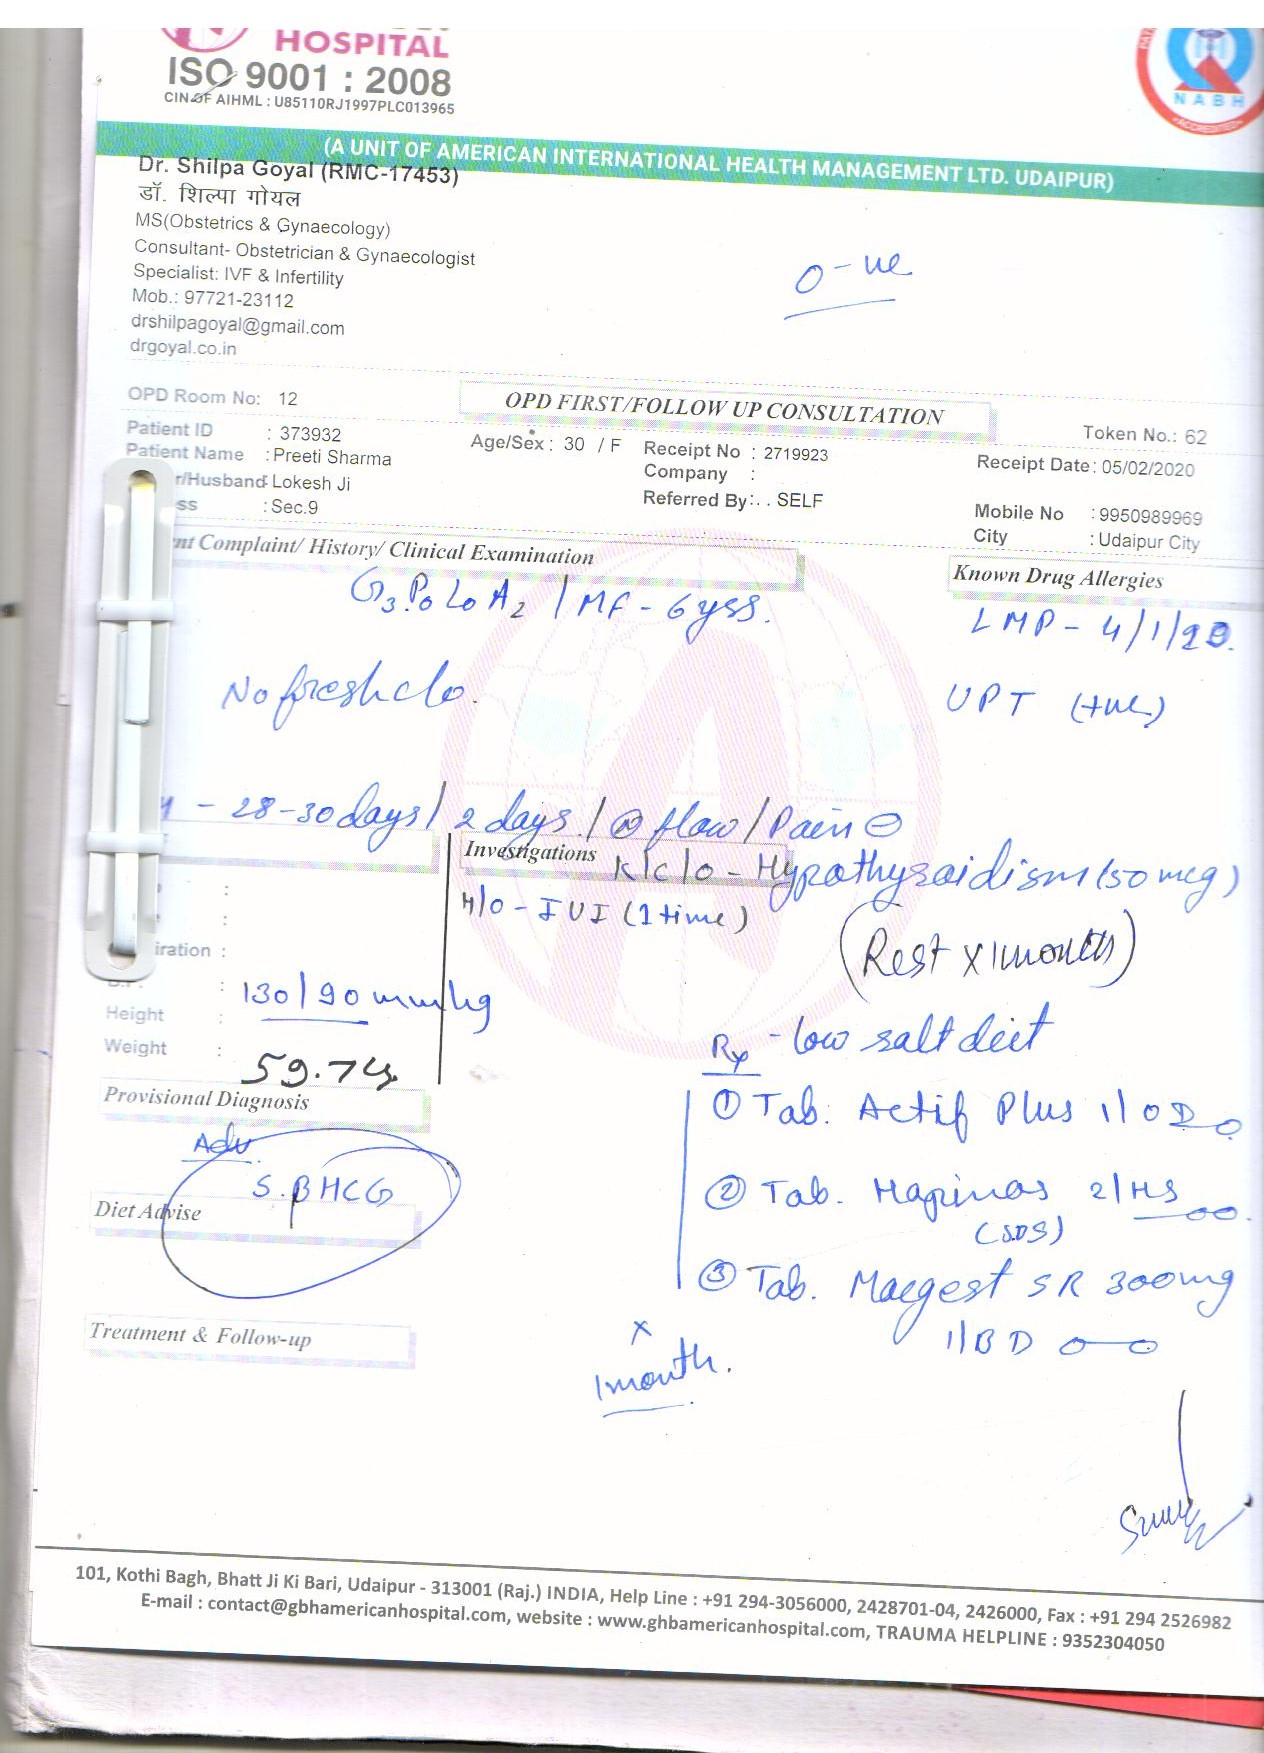 HOSPITAL
ISO 9001 : 2008
CIN OF AIHML : U85110RJ1997PLC013965
NABH
ACCREDITED
(A UNIT OF AMERICAN INTERNATIONAL HEALTH MANAGEMENT LTD. UDAIPUR)
Dr. Shilpa Goyal (RMC-17453)
डॉ. शिल्पा गोयल
MS(Obstetrics & Gynaecology)
Consultant- Obstetrician & Gynaecologist
Specialist: IVF & Infertility
Mob.: 97721-23112
drshilpagoyal@gmail.com
drgoyal.co.in
O-ve
OPD Room No: 12
OPD FIRST/FOLLOW UP CONSULTATION
Token No.: 62
Patient ID : 373932
Age/Sex : 30 / F
Receipt No : 2719923
Receipt Date: 05/02/2020
Patient Name : Preeti Sharma
Company :
r/Husband: Lokesh Ji
Referred By: . . SELF
Mobile No : 9950989969
ss : Sec.9
City : Udaipur City
nt Complaint/ History/ Clinical Examination
Known Drug Allergies
G3P0L0A2 / MF - 6 yrs.
LMP - 4/1/20.
No fresh c/o.
UPT (+ve)
- 28-30 days / 2 days / (N) flow / Pain ⊖
Investigations
K/c/o - Hypothyroidism (50 mcg)
H/o - IUI (1 time)
iration :
(Rest x 1 month)
130/90 mmhg
Height :
Weight : 59.7
Rx - low salt deit
Provisional Diagnosis
① Tab. Actif Plus 1/OD
Adv
S. βHCG
② Tab. 2/HS
(SOS)
Diet Advise
③ Tab. SR 300mg
1/BD
Treatment & Follow-up
x
1 month.
101, Kothi Bagh, Bhatt Ji Ki Bari, Udaipur - 313001 (Raj.) INDIA, Help Line : +91 294-3056000, 2428701-04, 2426000, Fax : +91 294 2526982
E-mail : contact@gbhamericanhospital.com, website : www.ghbamericanhospital.com, TRAUMA HELPLINE : 9352304050